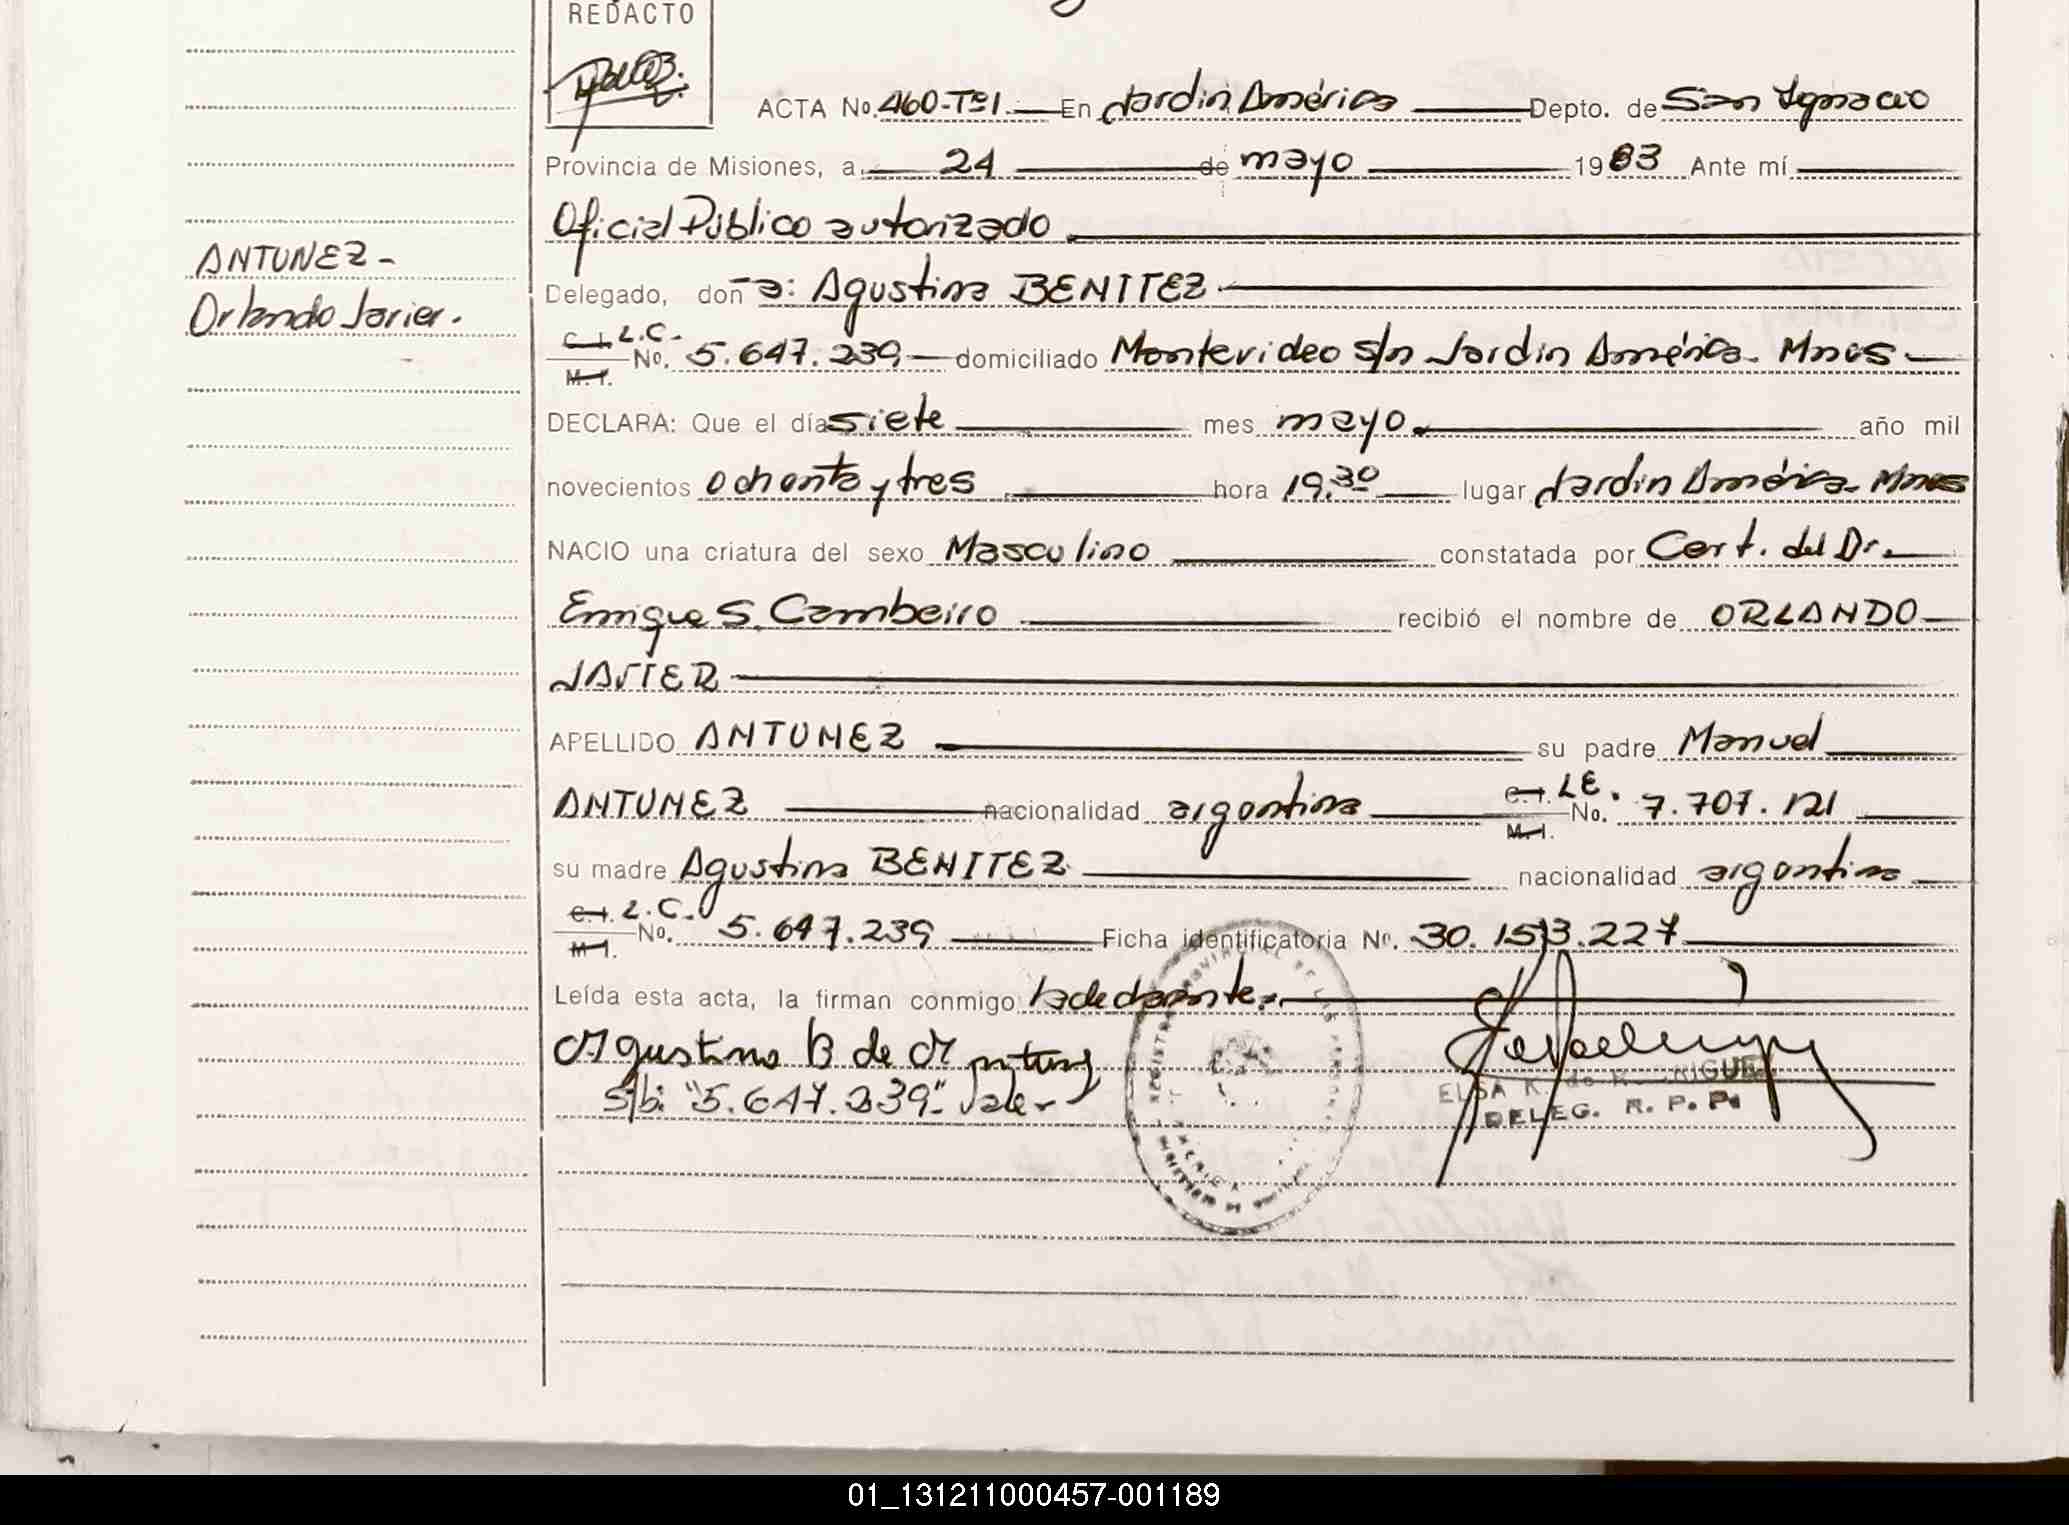 REDACTO
ACTA No. 460-Tº1. En Jardin América Depto. de San Ignacio
Provincia de Misiones, a 24 de mayo 1983 Ante mí
Oficial Público autorizado
ANTUNEZ-
Delegado, don a: Agustina BENITEZ
Orlando Javier.
C.I. L.C.-
M.I. No. 5.647.239 domiciliado Montevideo s/n Jardin América. Mnes
DECLARA: Que el día siete mes mayo. año mil
novecientos ochenta y tres hora 19.30 lugar Jardin América. Mnes
NACIO una criatura del sexo Masculino constatada por Cert. del Dr.
Enrique S. Cambeiro recibió el nombre de ORLANDO
JAVIER
APELLIDO ANTUNEZ su padre Manuel
ANTUNEZ nacionalidad argentina C.I. M.I. LE. No. 7.707.121
su madre Agustina BENITEZ nacionalidad argentina
C.I. L.C.
M.I. No. 5.647.239 Ficha identificatoria No. 30.153.227
Leída esta acta, la firman conmigo la declarante.
Agustina B de Antunez
S/b: "5.647.239." Vale-
ELSA K. de
DELEG. R. P. P.
01_131211000457-001189